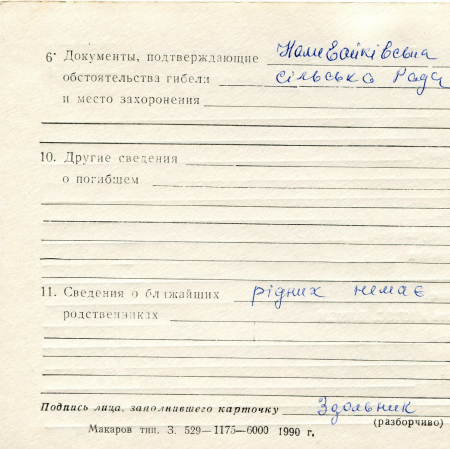 6· Документы, подтверждающие Наливайківська
обстоятельства гибели сільська Рада
и место захоронения
10. Другие сведения
о погибшем
11. Сведения о ближайших рідних немає
родственниках
Подпись лица, заполнившего карточку Здольник
(разборчиво)
Макаров тип. З. 529—1175—6000 1990 г.